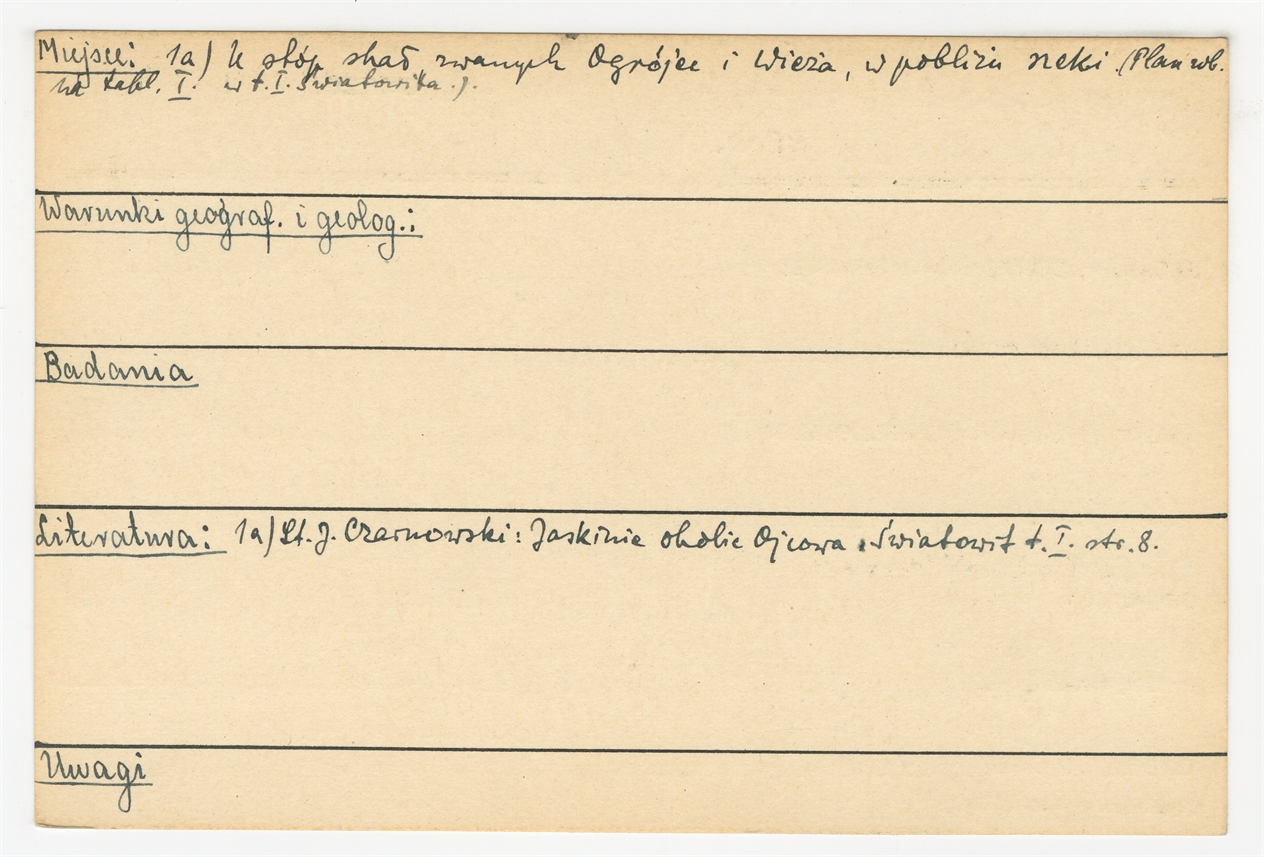 Miejsce: 1a) U stóp skał, zwanych Ogrójec i Wieża, w pobliżu rzeki. (Plan ob.
na tabl. I. w t. I. Światowita.).
Warunki geograf. i geolog.:
Badania
Literatura: 1a) St. J. Czarnowski: Jaskinie okolic Ojcowa. Światowit t. I. str. 8.
Uwagi